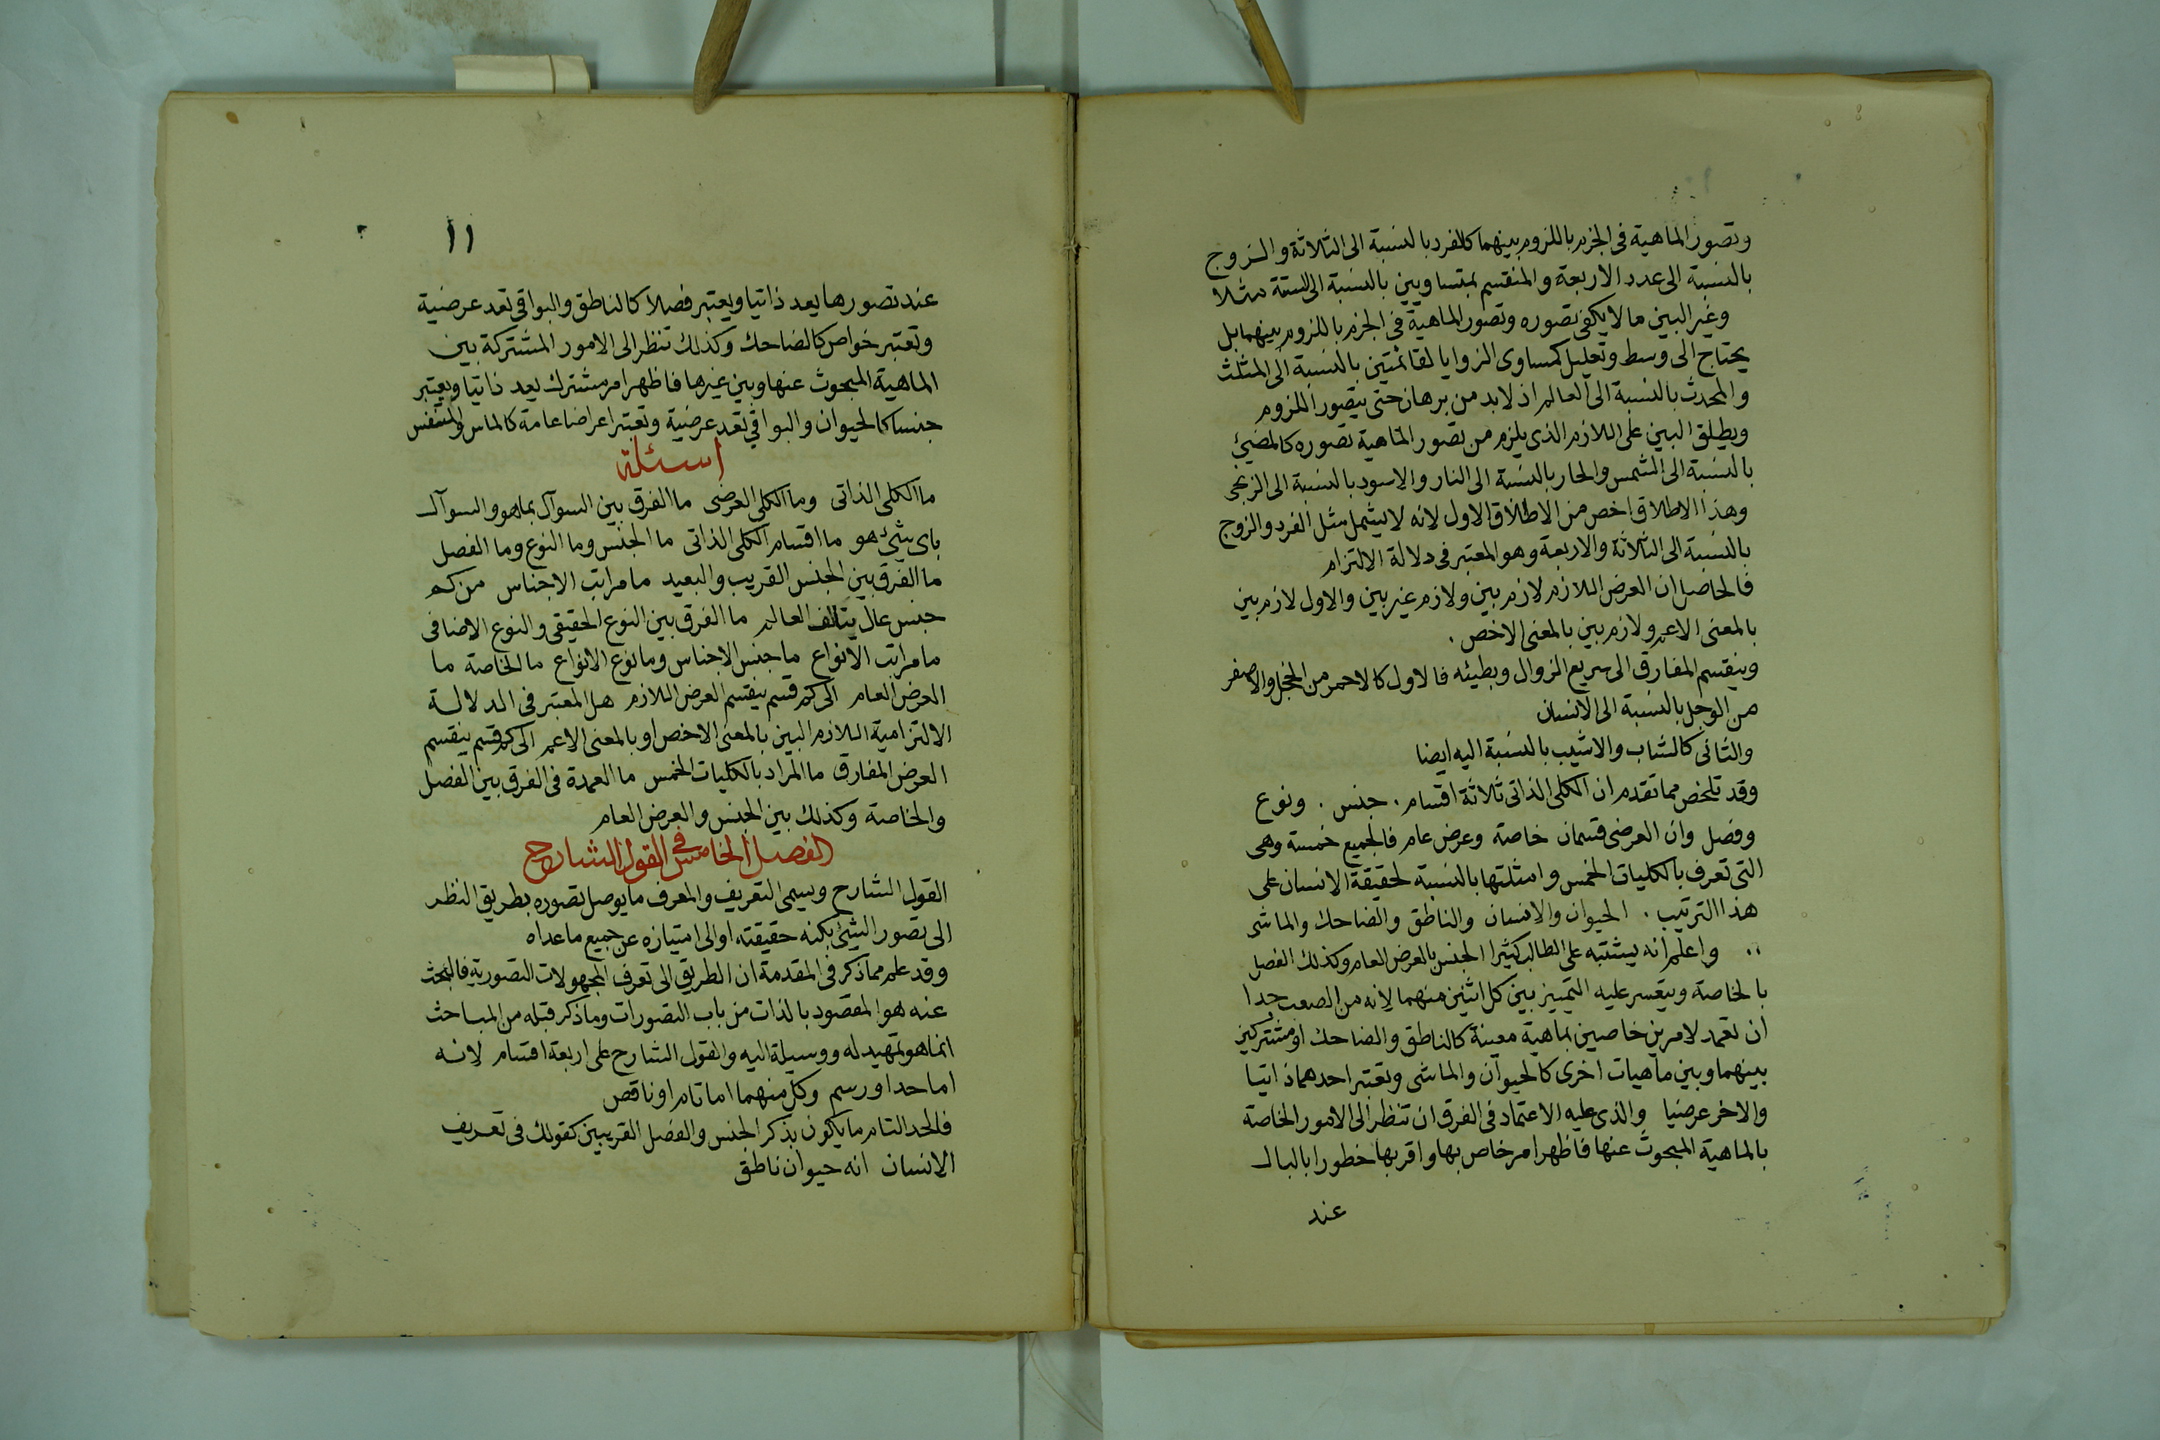 وتصور الماهية فى الجزم باللزوم بينهما كالفرد بالنسبة الى الثلاثة والزوج
بالنسبة الى عدد الاربعة والمنقسم بمتساويين بالنسبة الى الستة مثلا
وغير البين ما لا يكفى تصوره وتصور الماهية فى الجزم باللزوم بينهما بل
يحتاج الى وسط وتعليل كمساوى الزوايا لقائمتين بالنسبة الى المثلث
والمحدث بالنسبة الى العالم اذ لا بد من برهان حتى يتصور اللزوم
ويطلق البين على اللازم الذى يلزم من تصور الماهية تصوره كالمضيئ
بالنسبة الى الشمس والحار بالنسبة الى النار والاسود بالنسبة الى الزنجى
وهذا الاطلاق اخص من الاطلاق الاول لانه لا يشمل مثل الفرد والزوج
بالنسبة الى الثلاثة والاربعة وهو المعتبر فى دلالة الالتزام
فالحاصل ان العرض اللازم لازم بين ولازم غير بين والاول لازم بين
بالمعنى الاعم ولازم بين بالمعنى الاخص .
وينقسم المفارق الى سريع الزوال وبطيئه فالاول كالاحمر من الخجل والاصفر
من الوجل بالنسبة الى الانسان
والثانى كالشاب والاشيب بالنسبة اليه ايضا
وقد تلخص مما تقدم ان الكلى الذاتى ثلاثة اقسام . جنس . ونوع
وفصل وان العرضى قسمان خاصة وعرض عام فالجميع خمسة وهى
التى تعرف بالكليات الخمس وامثلتها بالنسبة لحقيقة الانسان على
هذا الترتيب . الحيوان والانسان والناطق والضاحك والماشى
.. واعلم انه يشتبه على الطالب كثيرا الجنس بالعرض العام وكذلك الفصل
بالخاصة ويتعسر عليه التمييز بين كل اثنين منهما لانه من الصعب جدا
ان تعمد لامرين خاصين بماهية معينة كالناطق والضاحك او مشتركين
بينهما وبين ماهيات اخرى كالحيوان والماشى وتعتبر احدهما ذاتيا
والاخر عرضيا والذى عليه الاعتماد فى الفرق ان تنظر الى الامور الخاصة
بالماهية المبحوث عنها فاظهر امر خاص بها واقربها خطورا بالبال
عند
١١
عند تصورها يعد ذاتيا ويعتبر فصلا كالناطق والبواقى تعد عرضية
وتعتبر خواص كالضاحك وكذلك تنظر الى الامور المشتركة بين
الماهية المبحوث عنها وبين غيرها فاظهر امر مشترك يعد ذاتيا ويعتبر
جنسا كالحيوان والبواقى تعد عرضية وتعتبر اعراضا عامة كالماس والمتنفس
اسئلة
ما الكلى الذاتى وما الكلى العرضى ما الفرق بين السوآل بما هو والسوآل
باى شيئ هو ما اقسام الكلى الذاتى ما الجنس وما النوع وما الفصل
ما الفرق بين الجنس القريب والبعيد ما مراتب الاجناس من كم
جنس عال يتالف العالم ما الفرق بين النوع الحقيقى والنوع الاضافى
ما مراتب الانواع ما جنس الاجناس وما نوع الانواع ما الخاصة ما
العرض العام الى كم قسم ينقسم العرض اللازم هل المعتبر فى الدلالة
الالتزامية اللازم البين بالمعنى الاخص او بالمعنى الاعم الى كم قسم ينقسم
العرض المفارق ما المراد بالكليات الخمس ما العمدة فى الفرق بين الفصل
والخاصة وكذلك بين الجنس والعرض العام
الفصل الخامس فى القول الشارح
القول الشارح ويسمى التعريف والمعرف ما يوصل تصوره بطريق النظر
الى تصور الشيئ بكنه حقيقته او الى امتيازه عن جميع ما عداه
وقد علم مما ذكر فى المقدمة ان الطريق الى تعرف المجهولات التصورية فالبحث
عنه هو المقصود بالذات من باب التصورات وما ذكر قبله من المباحث
انما هو تمهيد له ووسيلة اليه والقول الشارح على اربعة اقسام لانه
اما حد او رسم وكل منهما اما تام او ناقص
فالحد التام ما يكون بذكر الجنس والفصل القريبين كقولك فى تعريف
الانسان انه حيوان ناطق